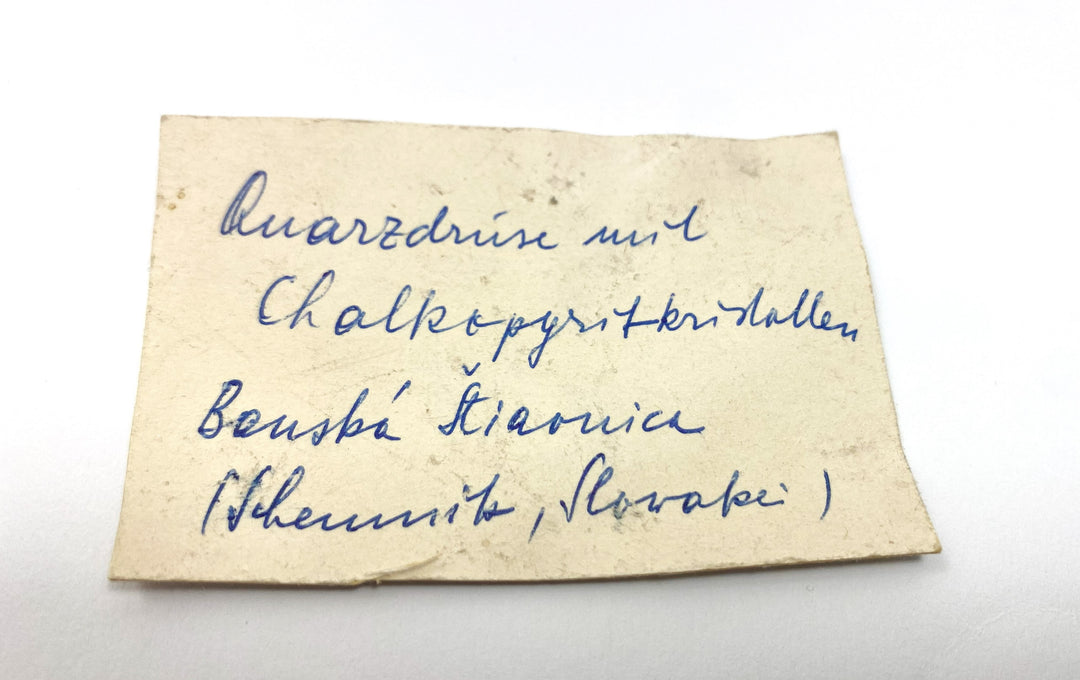 Quarzdruse mit
Chalkopyritkristallen
Banská Štiavnica
(Schemnitz, Slowakei)